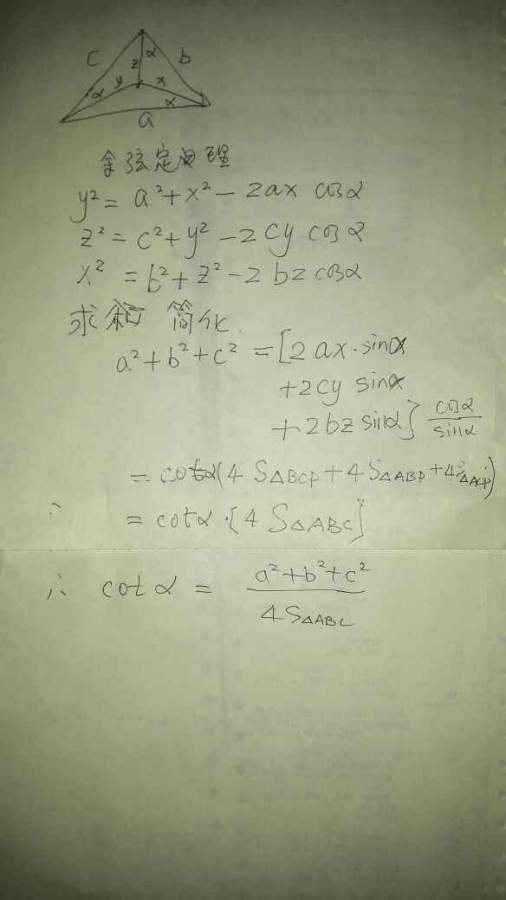 c
b
z
α
y
x
α
α
a
余弦定理
y² = a² + x² - 2ax cosα
z² = c² + y² - 2cy cosα
x² = b² + z² - 2bz cosα
求和 简化
a² + b² + c² = [2ax·sinα
+ 2cy sinα
+ 2bz sinα] cosα/sinα
= cotα(4S△BCP + 4S△ABP + 4S△ACP)
∴ = cotα·[4S△ABC]
∴ cotα = (a² + b² + c²)/(4S△ABC)